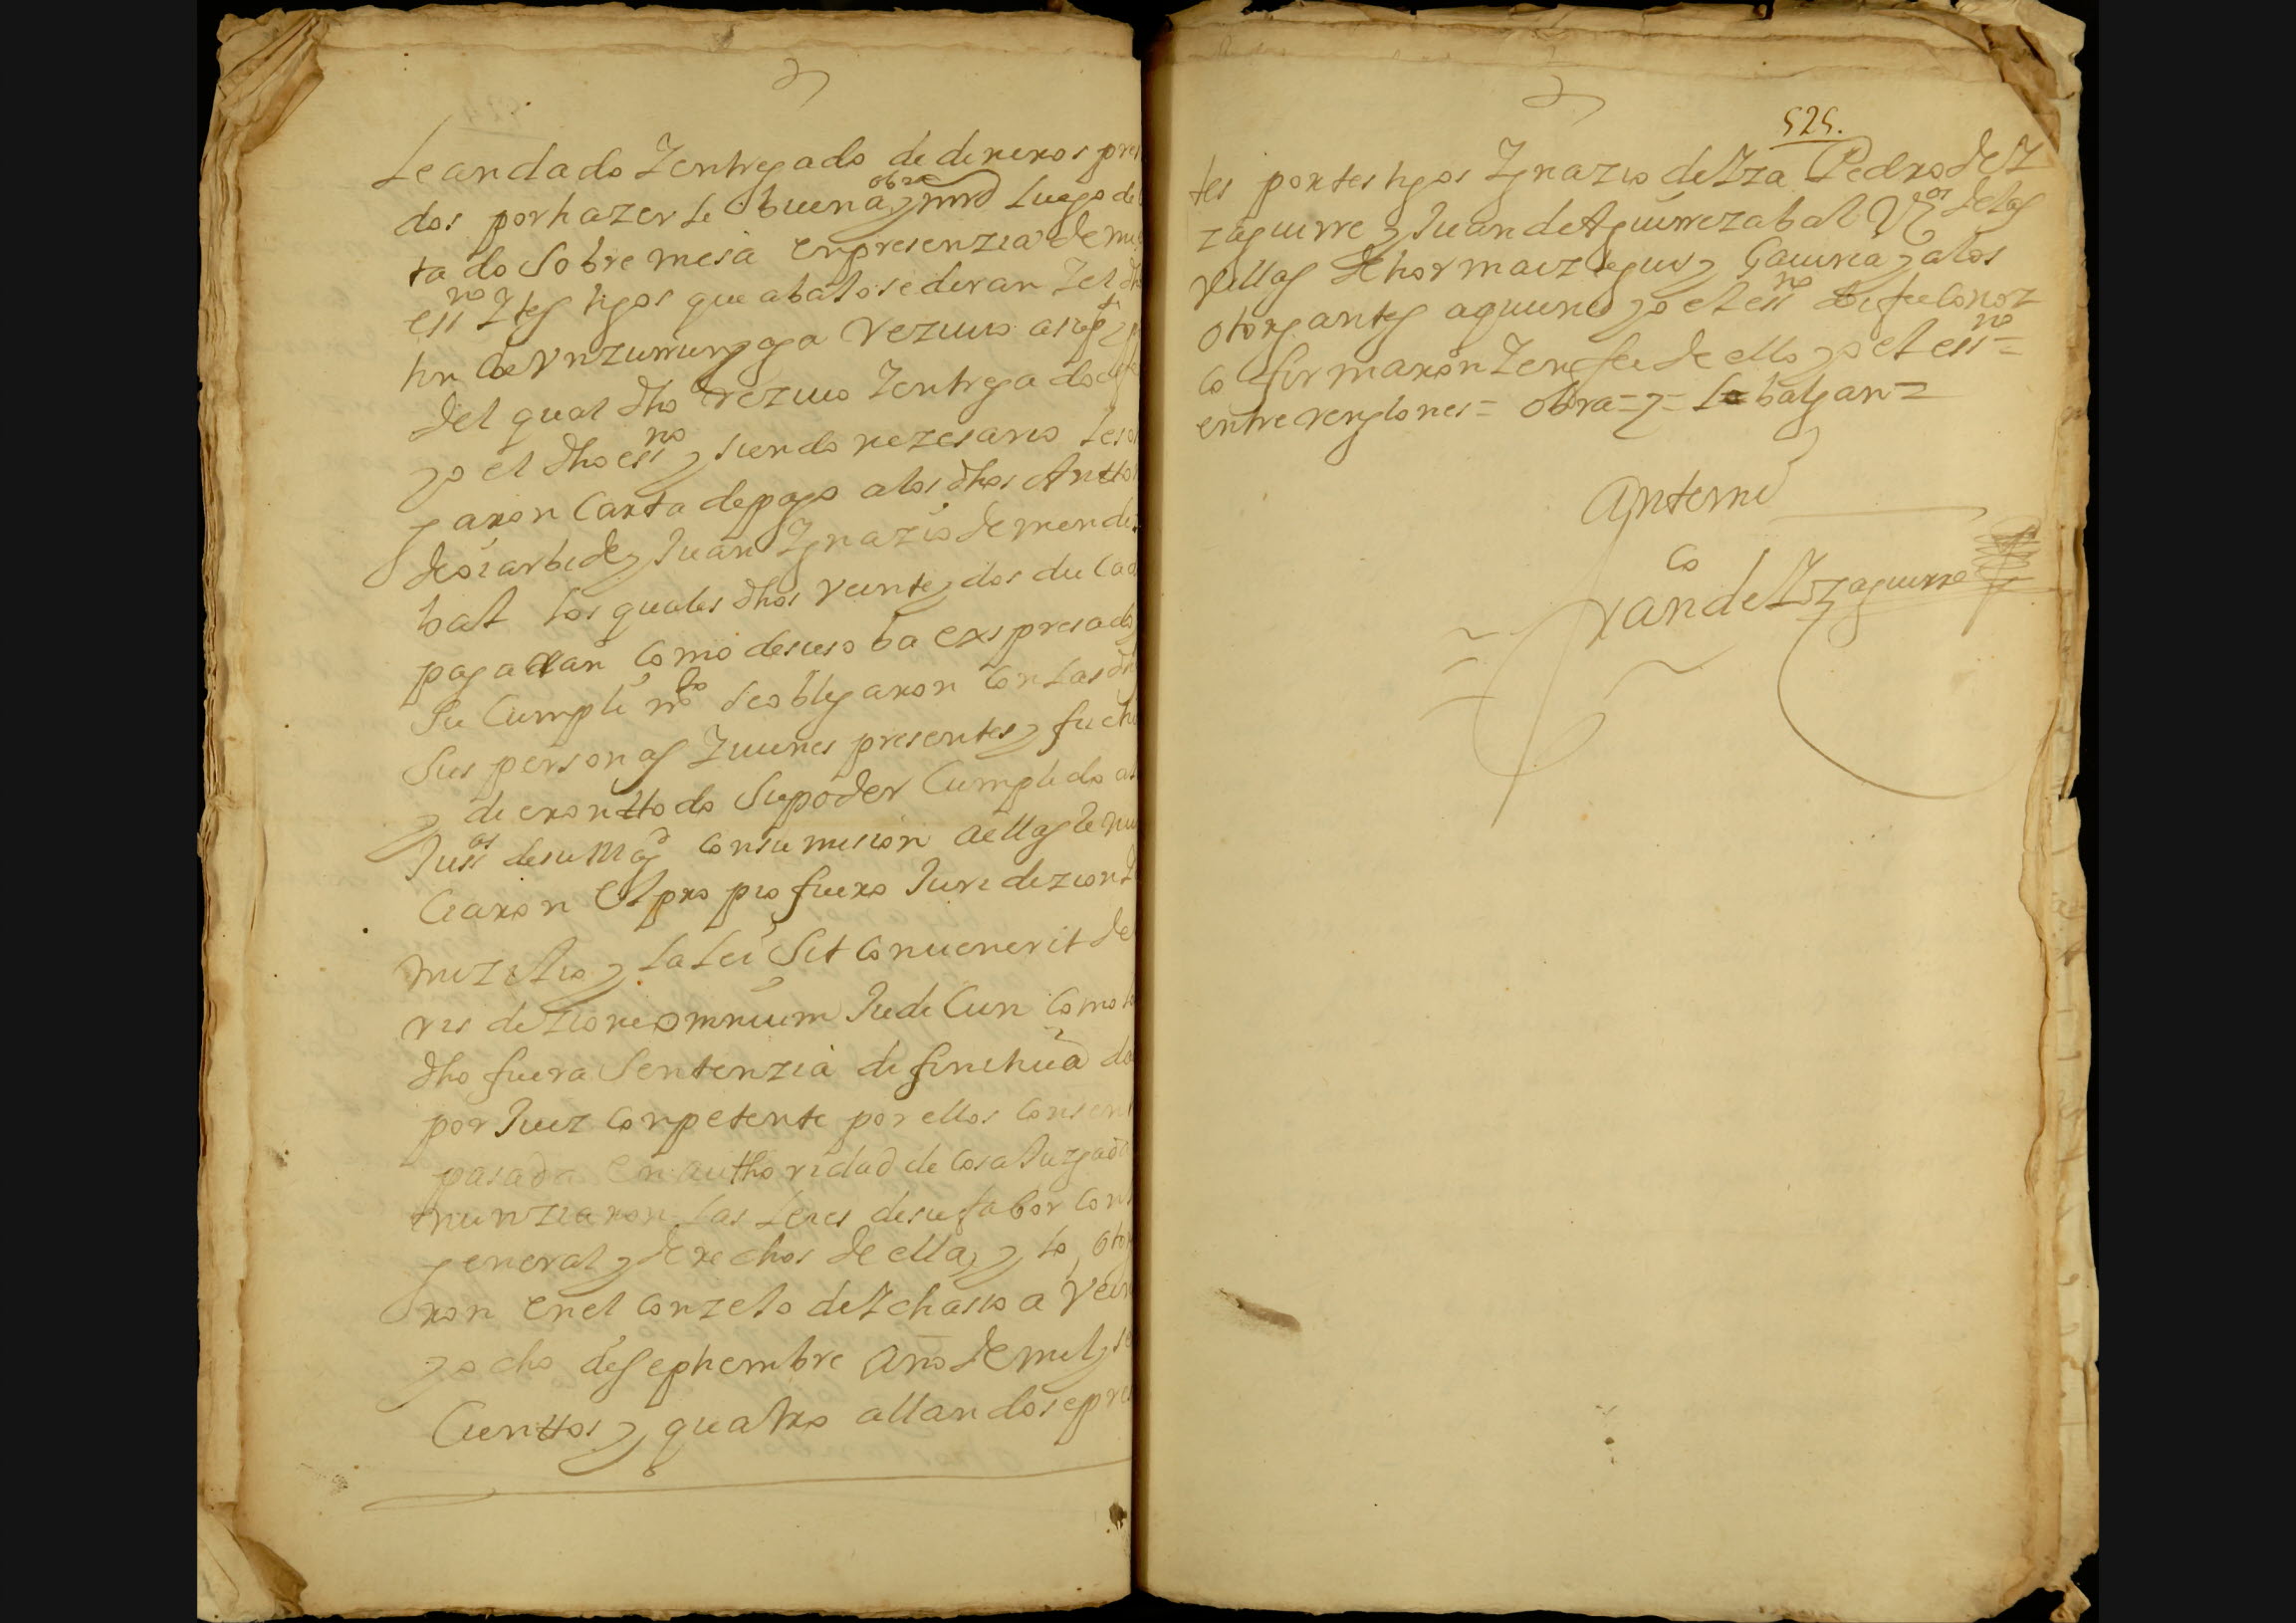 Leandado Y entregado de dineros pres
obra
dos por hazerle buena y mrd luego de
tado sobre mesa en presenzia de mi
essno Y testigos que abalo se diran Y el dho
tin de Vnzurrunzaga Reziuio
del qual dho Reziuo Y entrega doi fe
yo el dho essno y siendo nezesario les
garon Carta de pago a los dhos Antto
de oiarbide y Juan Ygnazio de mendi
bal los quales dhos veinte y dos ducad
pagaran Como desuso ba expresado
Su Cumplimto se obligaron Con las dh
Sus personas Y uienes presentes y futu
y dieron ttodo Su poder Cumplido a
Jusas de su Magd Con sumision a ellas Renun
Ciaron el propio fuero Juridizion
mizilio y la lei Sit Conuenerit de
ris dizione omnium Judicun Como
dho fuera Sentenzia difinitiua da
por Juez Conpetente por ellos Consen
pasada en autthoridad de Cosa Juzgada
nunziaron las leies de su fabor Con
general y derechos de ella y lo oto
ron en el Conzejo de Ychasso a Vein
y ocho de Septiembre Año de mil y se
Cienttos y quatro allandose pre
525.
tes por testigos Ygnazio de Yza Pedro de Y
zaguirre y Juan de Aguirrezabal Vos de las
Villas de hormaiztegui y Gauiria y a los
otorgantes a quienes yo el essno doi fee Conoz
co firmaron Y en fee de ello yo el essno =
entre renglones = obra = y = lo balgan =
Antemi
Co
Xan de Yzaguirre